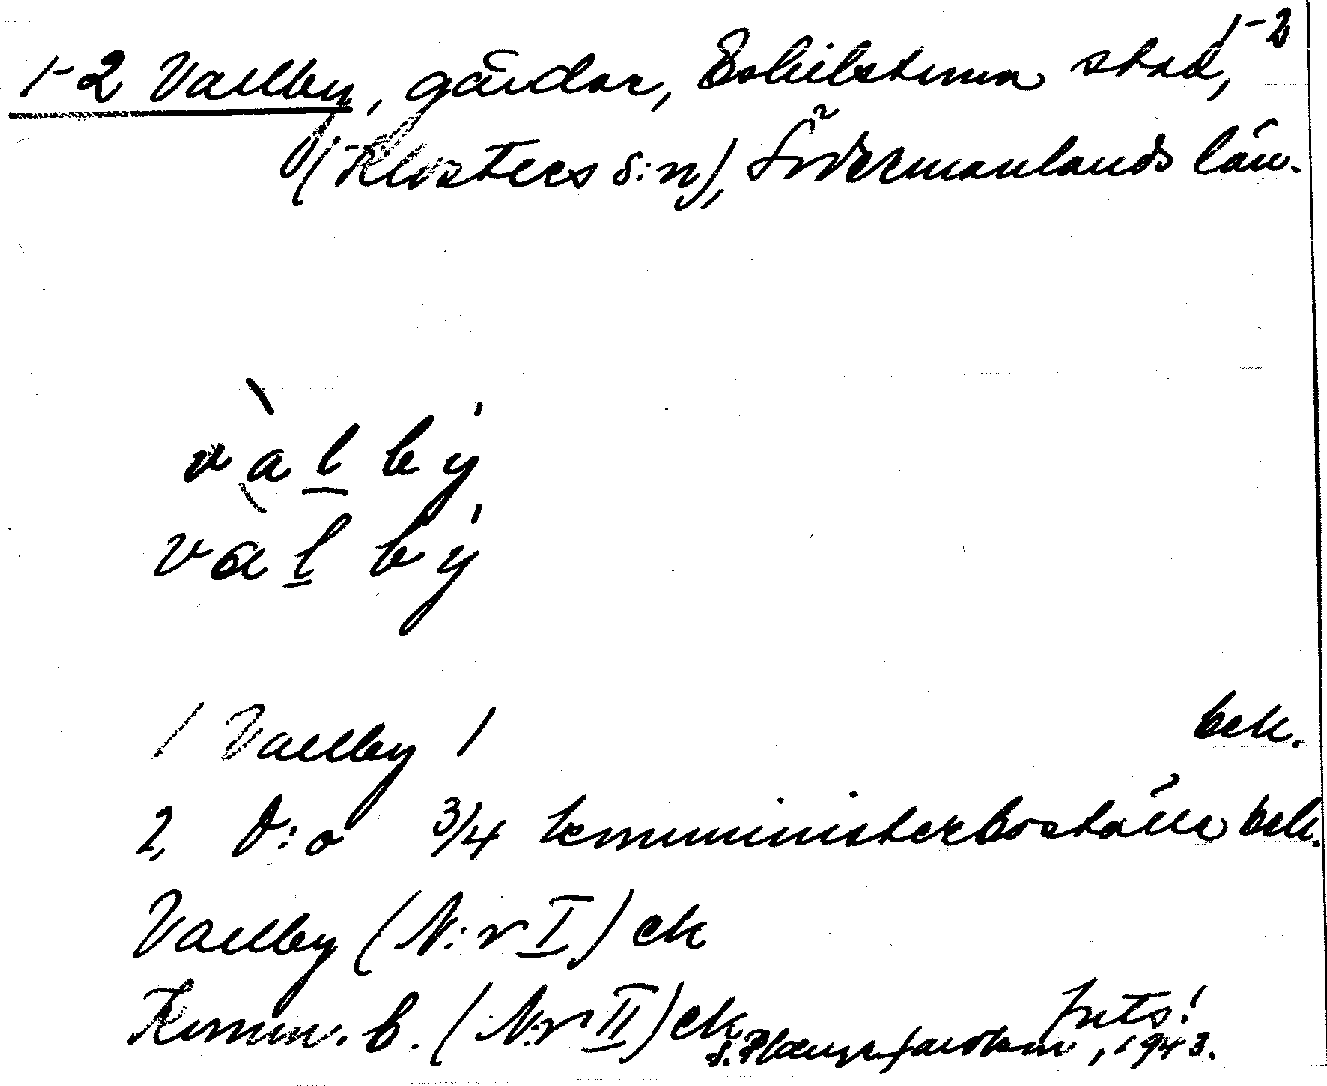 1-2
1-2 Vallby, gårdar, Eskilstuna stad,
(Klosters s:n), Södermanlands län.
vàlbý
valbý
1 Vallby 1 bek.
2, D:o 3/4 komministerboställe bek.
Vallby (N:r I) ek
Komm. b. (N:r II) ek
forts!
, 1943.